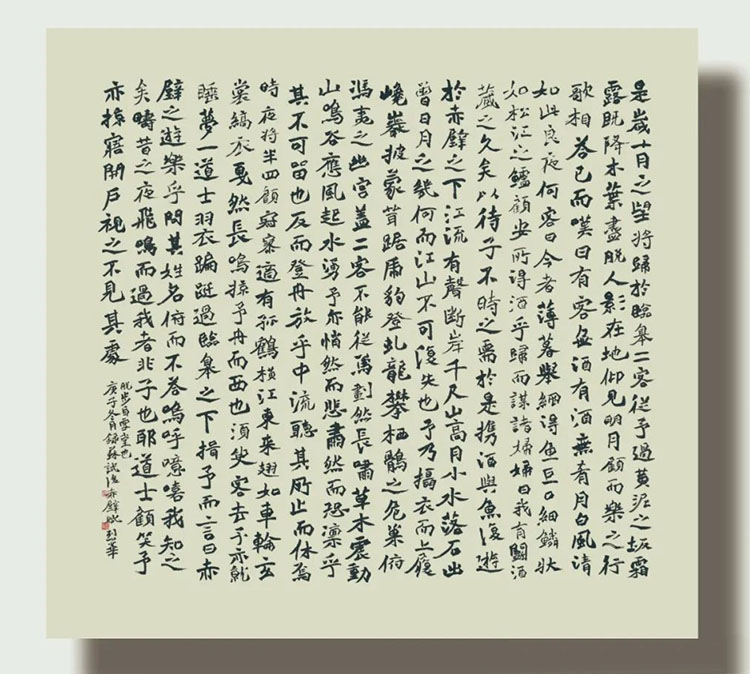 是歲十月之望將歸於臨皋二客從予過黃泥之坂霜
露既降木葉盡脫人影在地仰見明月顧而樂之行
歌相荅已而嘆曰有客無酒有酒無肴月白風清
如此良夜何客曰今者薄暮舉網得魚巨口細鱗狀
如松江之鱸顧安所得酒乎歸而謀諸婦婦曰我有鬭酒
藏之久矣以待子不時之需於是携酒與魚復遊
於赤壁之下江流有聲斷岸千尺山高月小水落石出
曾日月之幾何而江山不可復失也予乃攝衣而上履
巉巖披蒙茸踞虎豹登虬龍攀栖鶻之危巢俯
馮夷之幽宮蓋二客不能從焉劃然長嘯草木震動
山鳴谷應風起水湧予亦悄然而悲肅然而恐凜乎
其不可留也反而登舟放乎中流聽其所止而休焉
時夜將半四顧寂寥適有孤鶴橫江東來翅如車輪玄
裳縞衣戛然長鳴掠予舟而西也須臾客去予亦就
睡夢一道士羽衣蹁躚過臨皋之下揖予而言曰赤
壁之遊樂乎問其姓名俯而不荅嗚呼噫嘻我知之
矣疇昔之夜飛鳴而過我者非子也耶道士顧笑予
亦掠寤開戶視之不見其處
脫步自雪堂也
庚子冬月錄蘇軾後赤壁賦